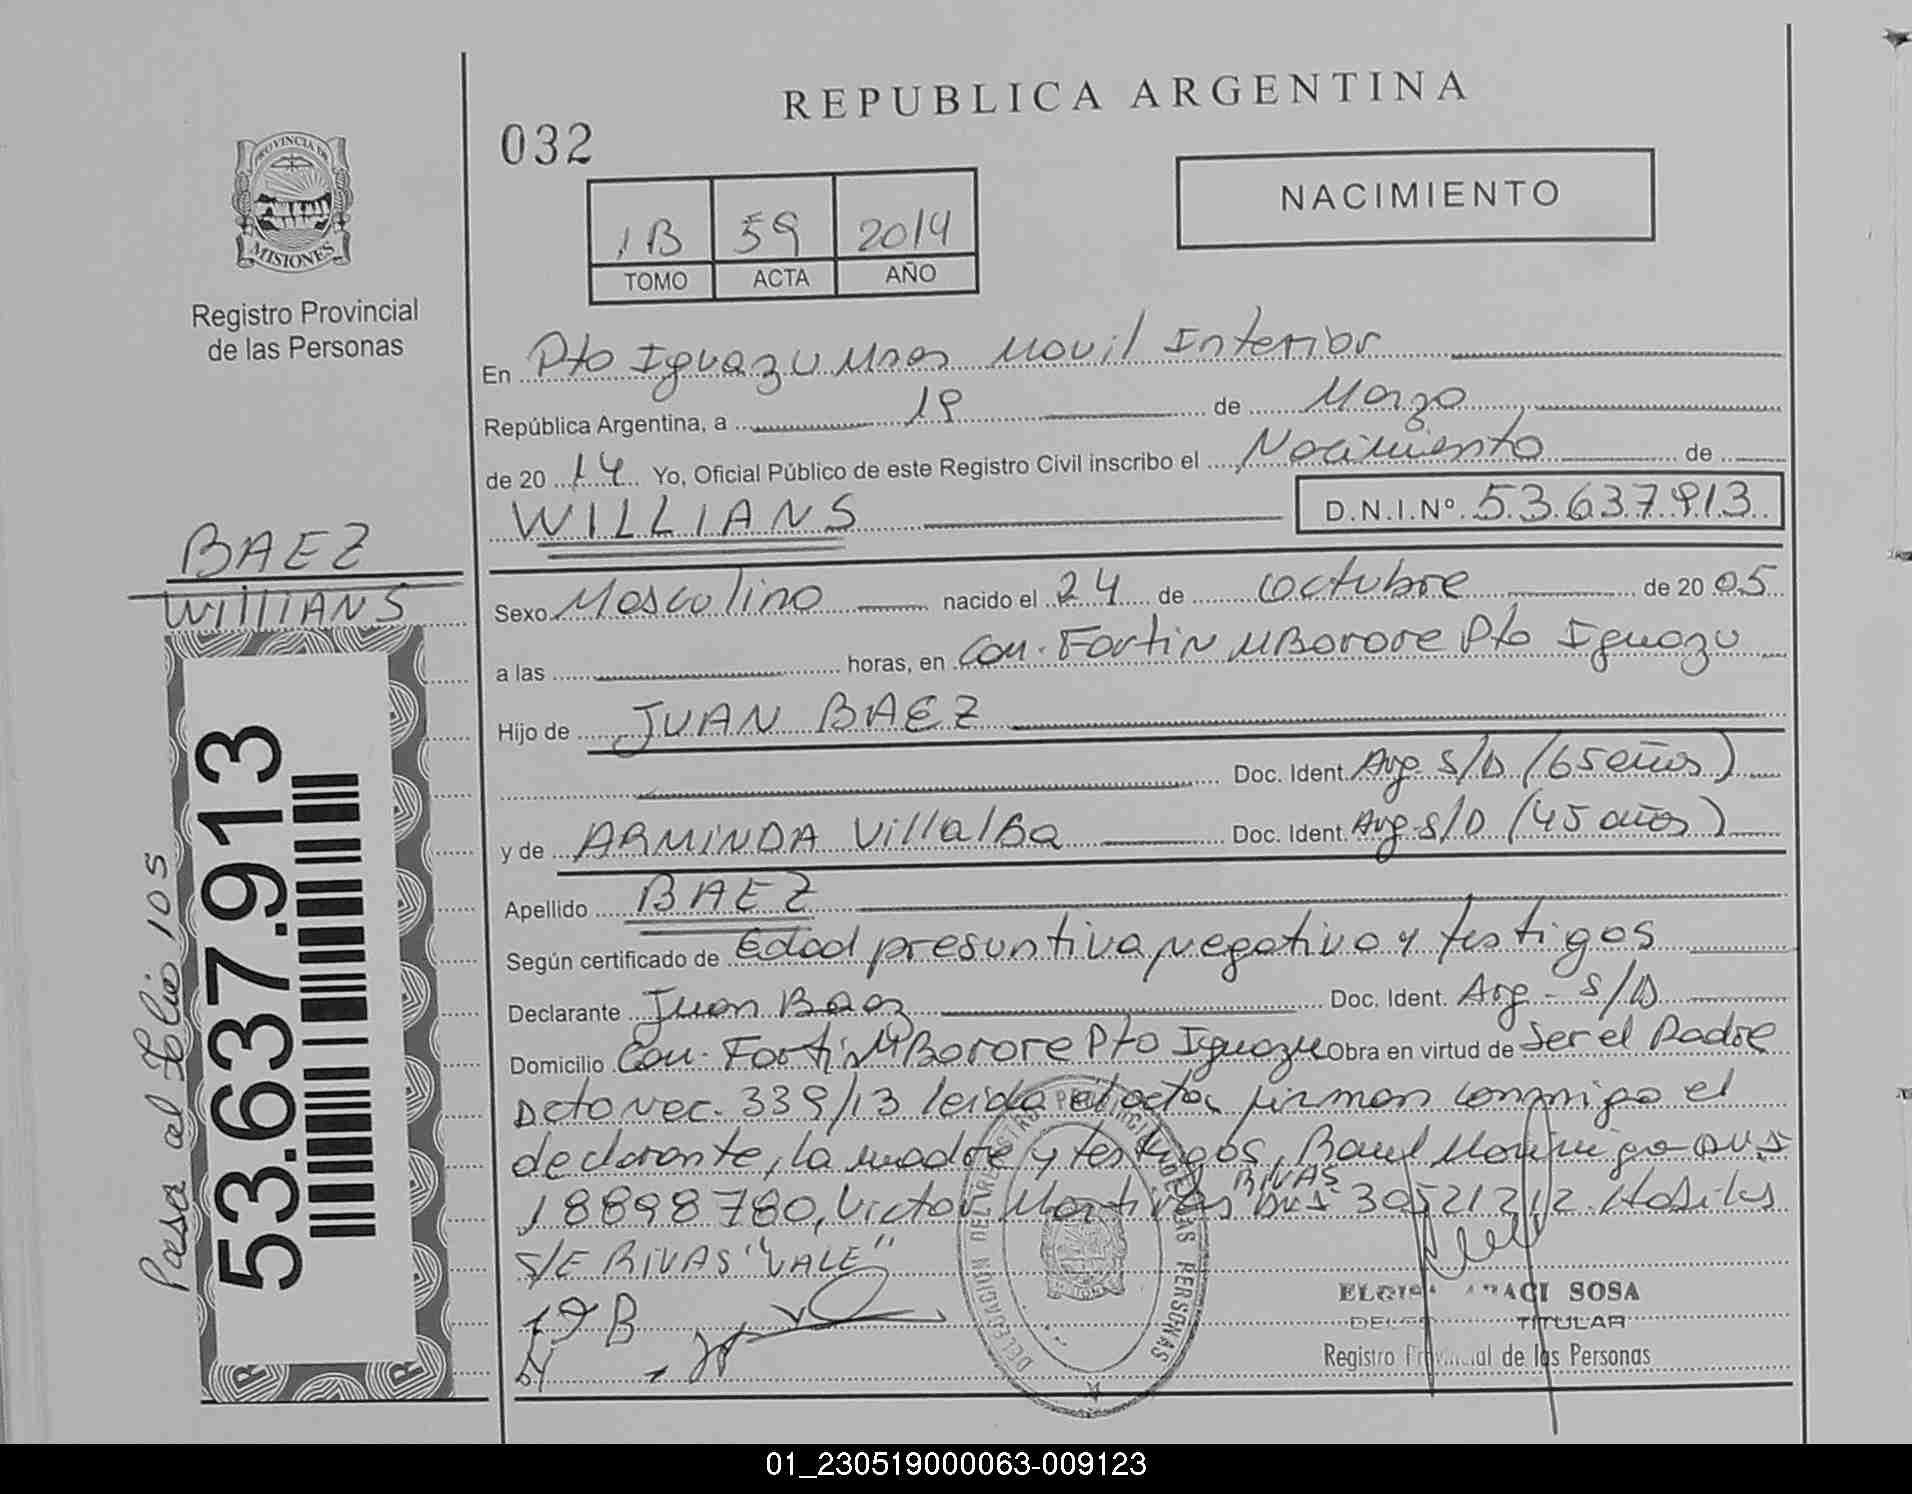 REPUBLICA ARGENTINA
032
PROVINCIA DE
MISIONES
Registro Provincial
de las Personas
1B 59 2014
TOMO ACTA AÑO
NACIMIENTO
En Pto Iguazu Mnes Movil Interior
República Argentina, a 19 de Marzo
de 20 14 Yo, Oficial Público de este Registro Civil inscribo el Nacimiento de
WILLIANS D.N.I.Nº 53.637.913
BAEZ
WILLIANS
Sexo Masculino nacido el 24 de octubre de 20 05
a las horas, en Com. Fortin MBorore Pto Iguazu
Hijo de JUAN BAEZ
Doc. Ident. Arg. S/D (65 años)
y de ARMINDA Villalba Doc. Ident. Arg. S/D (45 años)
Apellido BAEZ
Según certificado de Edad presuntiva, negativo y testigos
Declarante Juan Baez Doc. Ident. Arg - S/D
Domicilio Com. Fortin MBorore Pto Iguazu Obra en virtud de Ser el Padre
Dcto Nec. 339/13 leida el acta, firman conmigo el
declarante, la madre y testigos, Raul DNI
18898780, Victor Martines RIVAS DNI 30521212.
S/E RIVAS "VALE"
JB
53.637.913
Pasa al Folio 105
DELEGACION DEL REGISTRO PROVINCIAL DE LAS PERSONAS
SOSA
TITULAR
Registro Provincial de las Personas
01_230519000063-009123